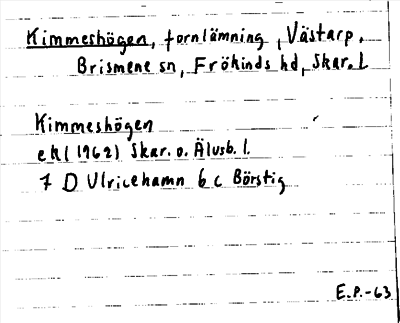 Kimmeshögen, fornlämning, Västarp,
Brismene sn, Frökinds hd, Skar. l.
Kimmeshögen
ek (1962) Skar. o. Älvsb. l.
7 D Ulricehamn 6 c Börstig
E.P.-63